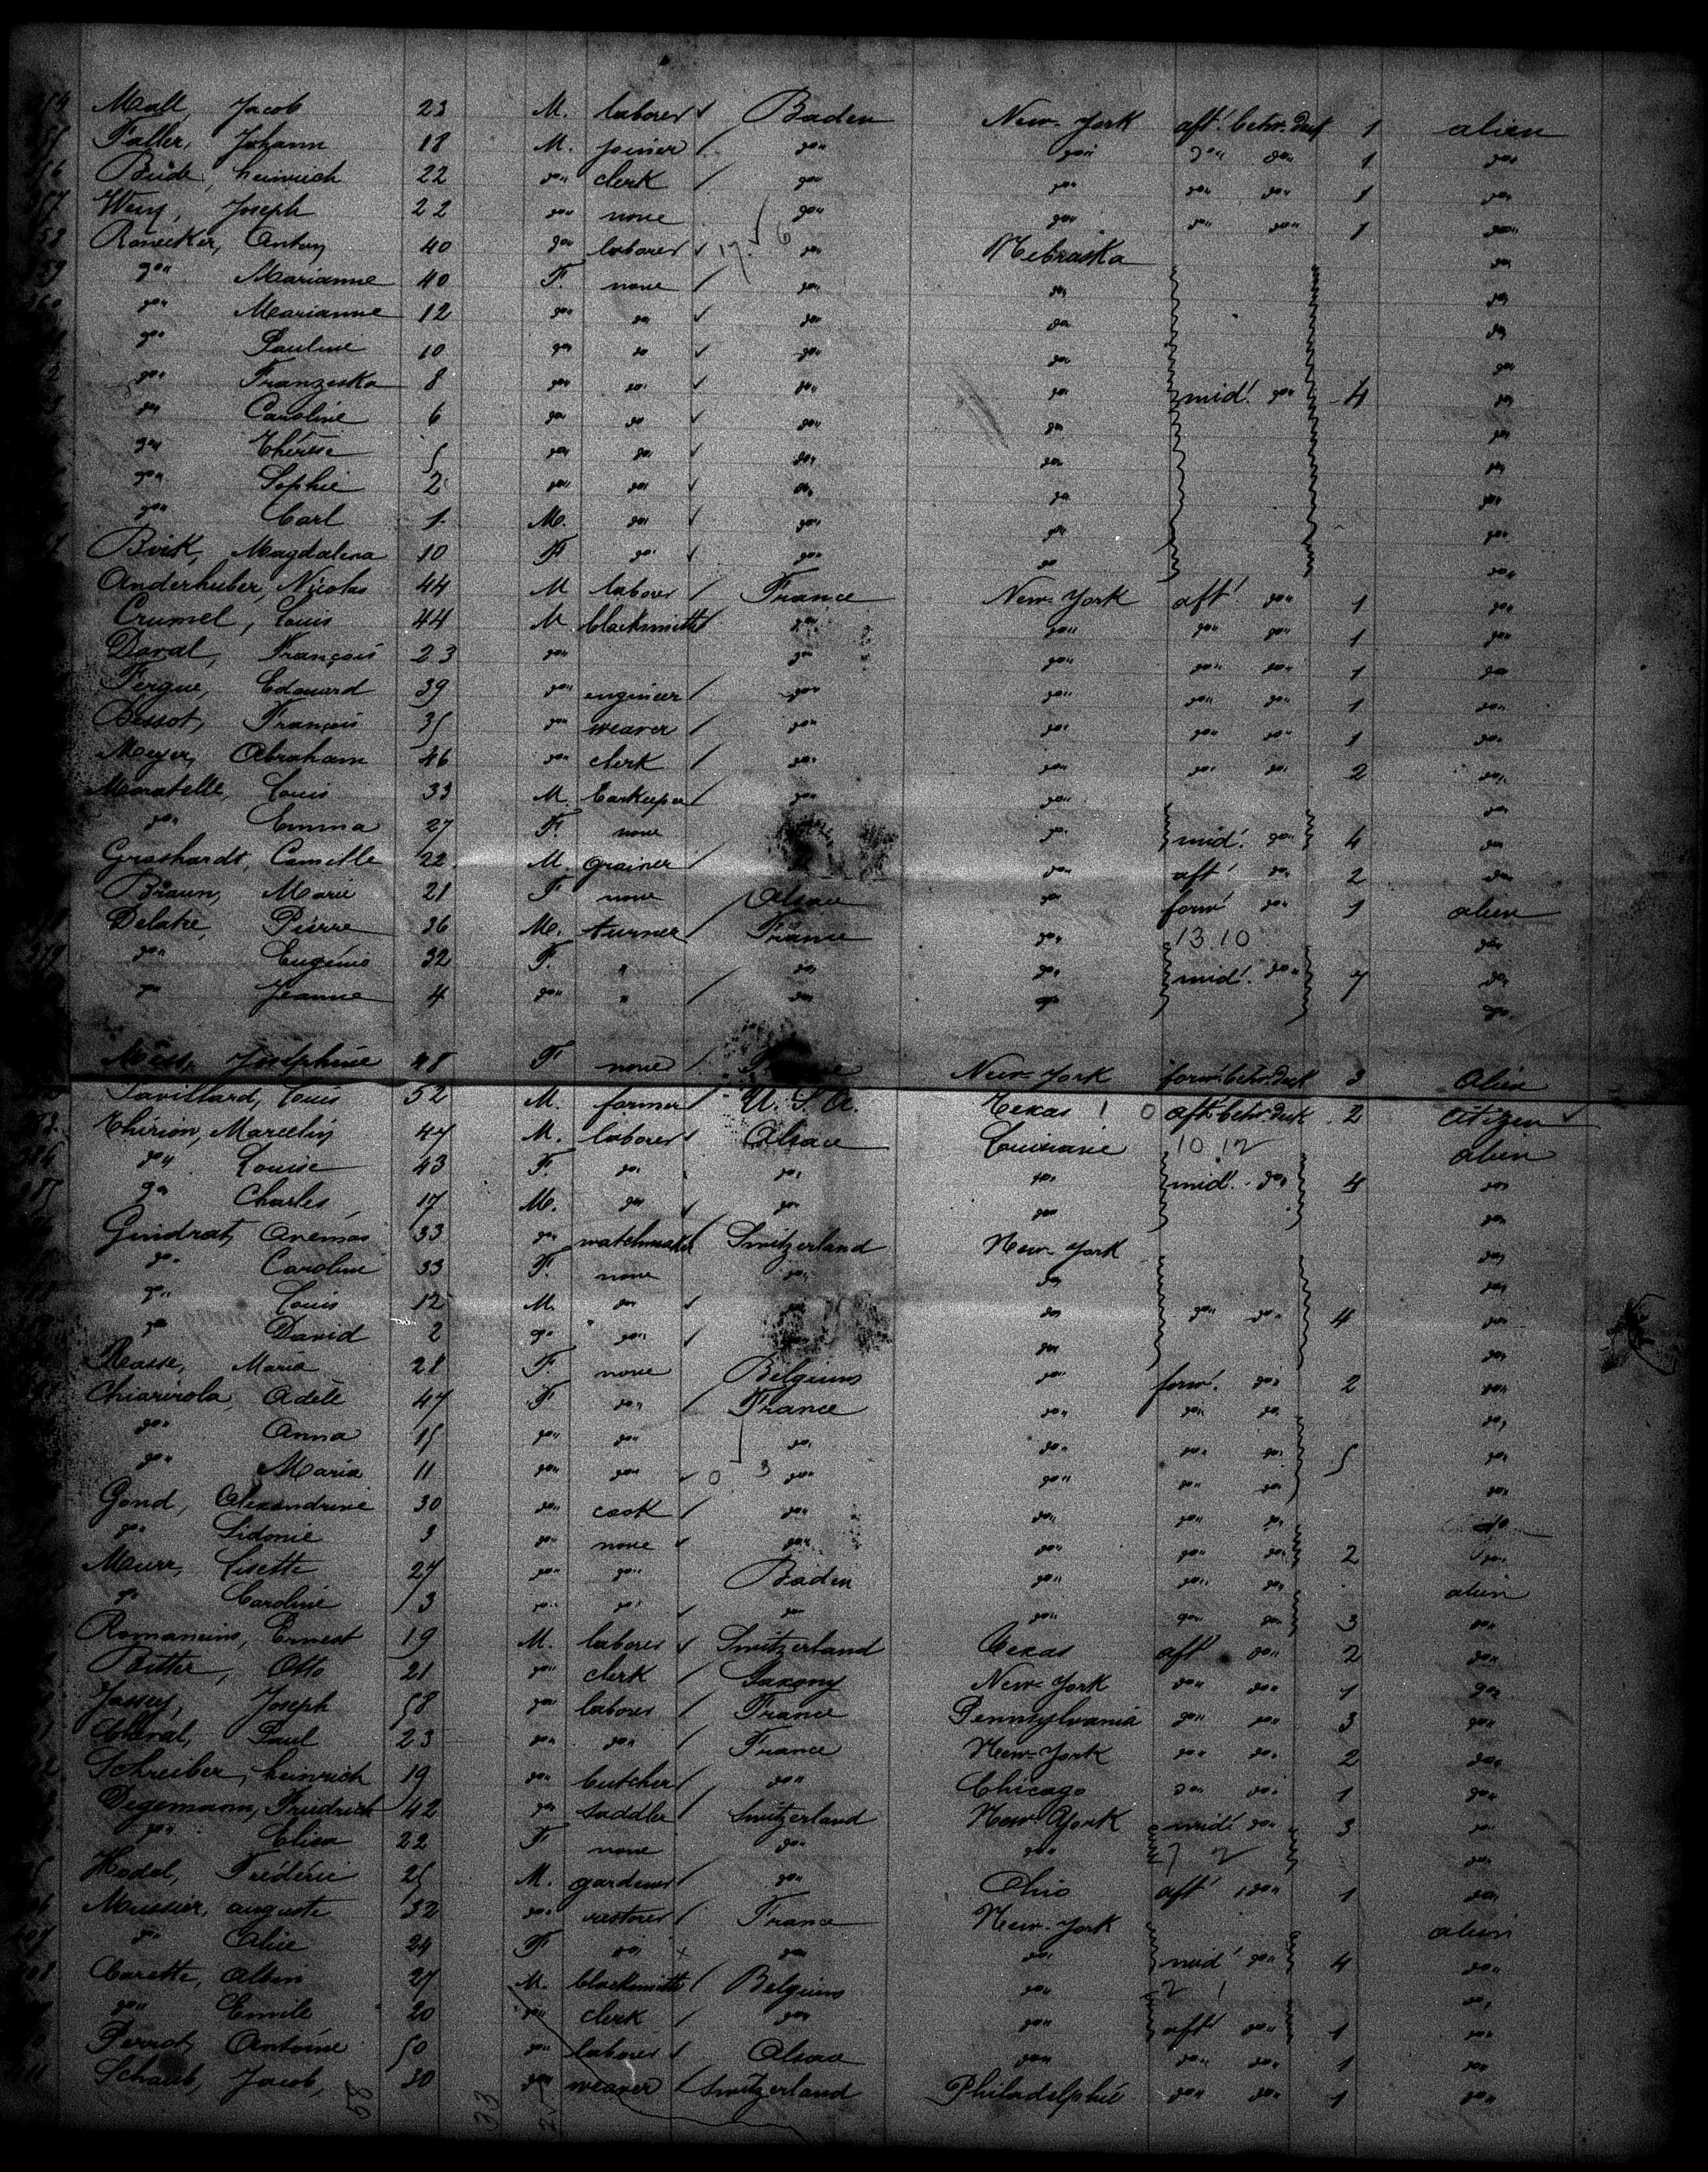 Mall, Jacob 23 M. laborer Baden New-York aft. betw. deck 1 alien
Faller, Johann 18 M. joiner do" do" do" do" 1 do"
Heinrich 22 do" clerk do" do" do" do" 1 do"
Joseph 22 do" none do" do" do" do" 1 do"
Ronecker, Antony 40 do" laborer do" Nebraska do"
do" Marianne 40 F. none do" do" do"
do" Marianne 12 do" do" do" do" do"
do" Pauline 10 do" do do" do" do"
do" Franziska 8 do" do" do" do" mid. do" 4 do"
do" Caroline 6 do" do" do" do" do"
do" Thérèse 5 do" do" do" do" do"
do" Sophie 2 do" do" do" do" do"
do" Carl 1 M. do" do" do" do"
Magdalena 10 F do" do" do do"
Anderhuber, Nicolas 44 M laborer France New-York aft. do" 1 do"
Crumel, Louis 44 M blacksmith do" do" do" do" 1 do"
Daval, François 23 do" do" do" do" do" 1 do"
Fergue, Edouard 39 do" engineer do" do" do" do" 1 do"
Bessot, François 35 do" weaver do" do" do" do" 1 do"
Meyer, Abraham 46 do" clerk do" do" do" do" 2 do"
Louis 33 M. barkeeper do" do" do"
do" Emma 27 F. none do" mid. do" 4 do"
Camille 22 M. grainer do" aft. do" 2 do"
Braun, Marie 21 F none Alsace do" forw. do" 1 alien
Pierre 36 M. turner France do" 13.10 do"
do" Eugénie 32 F. " do" do" mid. do" 7 do"
do" Jeanne 4 do" " do" do" do"
Josephine 48 F none New-York forw. betw. deck 3 Alien
Louis 52 M. farmer U. S. A. Texas 10 aft. betw. deck 2 citizen
Thirion, Marcelin 47 M. laborer Alsace Louisiane 10.12 alien
do" Louise 43 F. do" do" do" mid. do" 4 do"
do" Charles 17 M. do" do" do" do"
Guidrat, 33 do" watchmaker Switzerland New-York do"
do" Caroline 33 F. none do" do" do"
do" Louis 12 M. do" do" do" do" do" 4 do"
do" David 2 do" do" do" do"
Rasse, Maria 28 F. none Belgium do" forw. do" 2 do"
Adèle 47 F do" France do" do" do" do"
do" Anna 15 do" do" do" do" do" do" 5 do"
do" Maria 11 do" do" 0 3 do" do" do" do" do"
Gond, Alexandrine 30 do" cook do" do" do" do" do
do" Sidonie 3 do" none do" do" do" do" 2 do"
Murr, Lisette 27 do" do" Baden do" do" do" alien
do" Caroline 3 do" do" do" do" do" do" 3 do"
Ernest 19 M. laborer Switzerland Texas aft do" 2 do"
Otto 21 do" clerk Saxony New-York do" do" 1 do"
Joseph 58 do" laborer France Pennsylvania do" do" 3 do"
Paul 23 do" do" France New-York do" do" 2 do"
Schreiber, Heinrich 19 do" butcher do" Chicago do" do" 1 do"
Degemann, Friedrich 42 do" saddler Switzerland New-York mid. do" 3 do"
do" Elisa 22 F none do" do" do"
Hodel, Frédéric 25 M. gardener do" Ohio aft. do" 1 do"
Auguste 32 do" France New-York alien
do" Alice 24 F do" do" do" mid. do" 4 do"
Carette, Albin 27 M. blacksmith Belgium do" do"
do" Emile 20 do" clerk do" do" aft. do" 1 do"
Perrot, Antoine 50 do" laborer Alsace do" do" do" 1 do"
Schaub, Jacob, 30 do" weaver Switzerland Philadelphie do" do" 1 do"
58 33 25